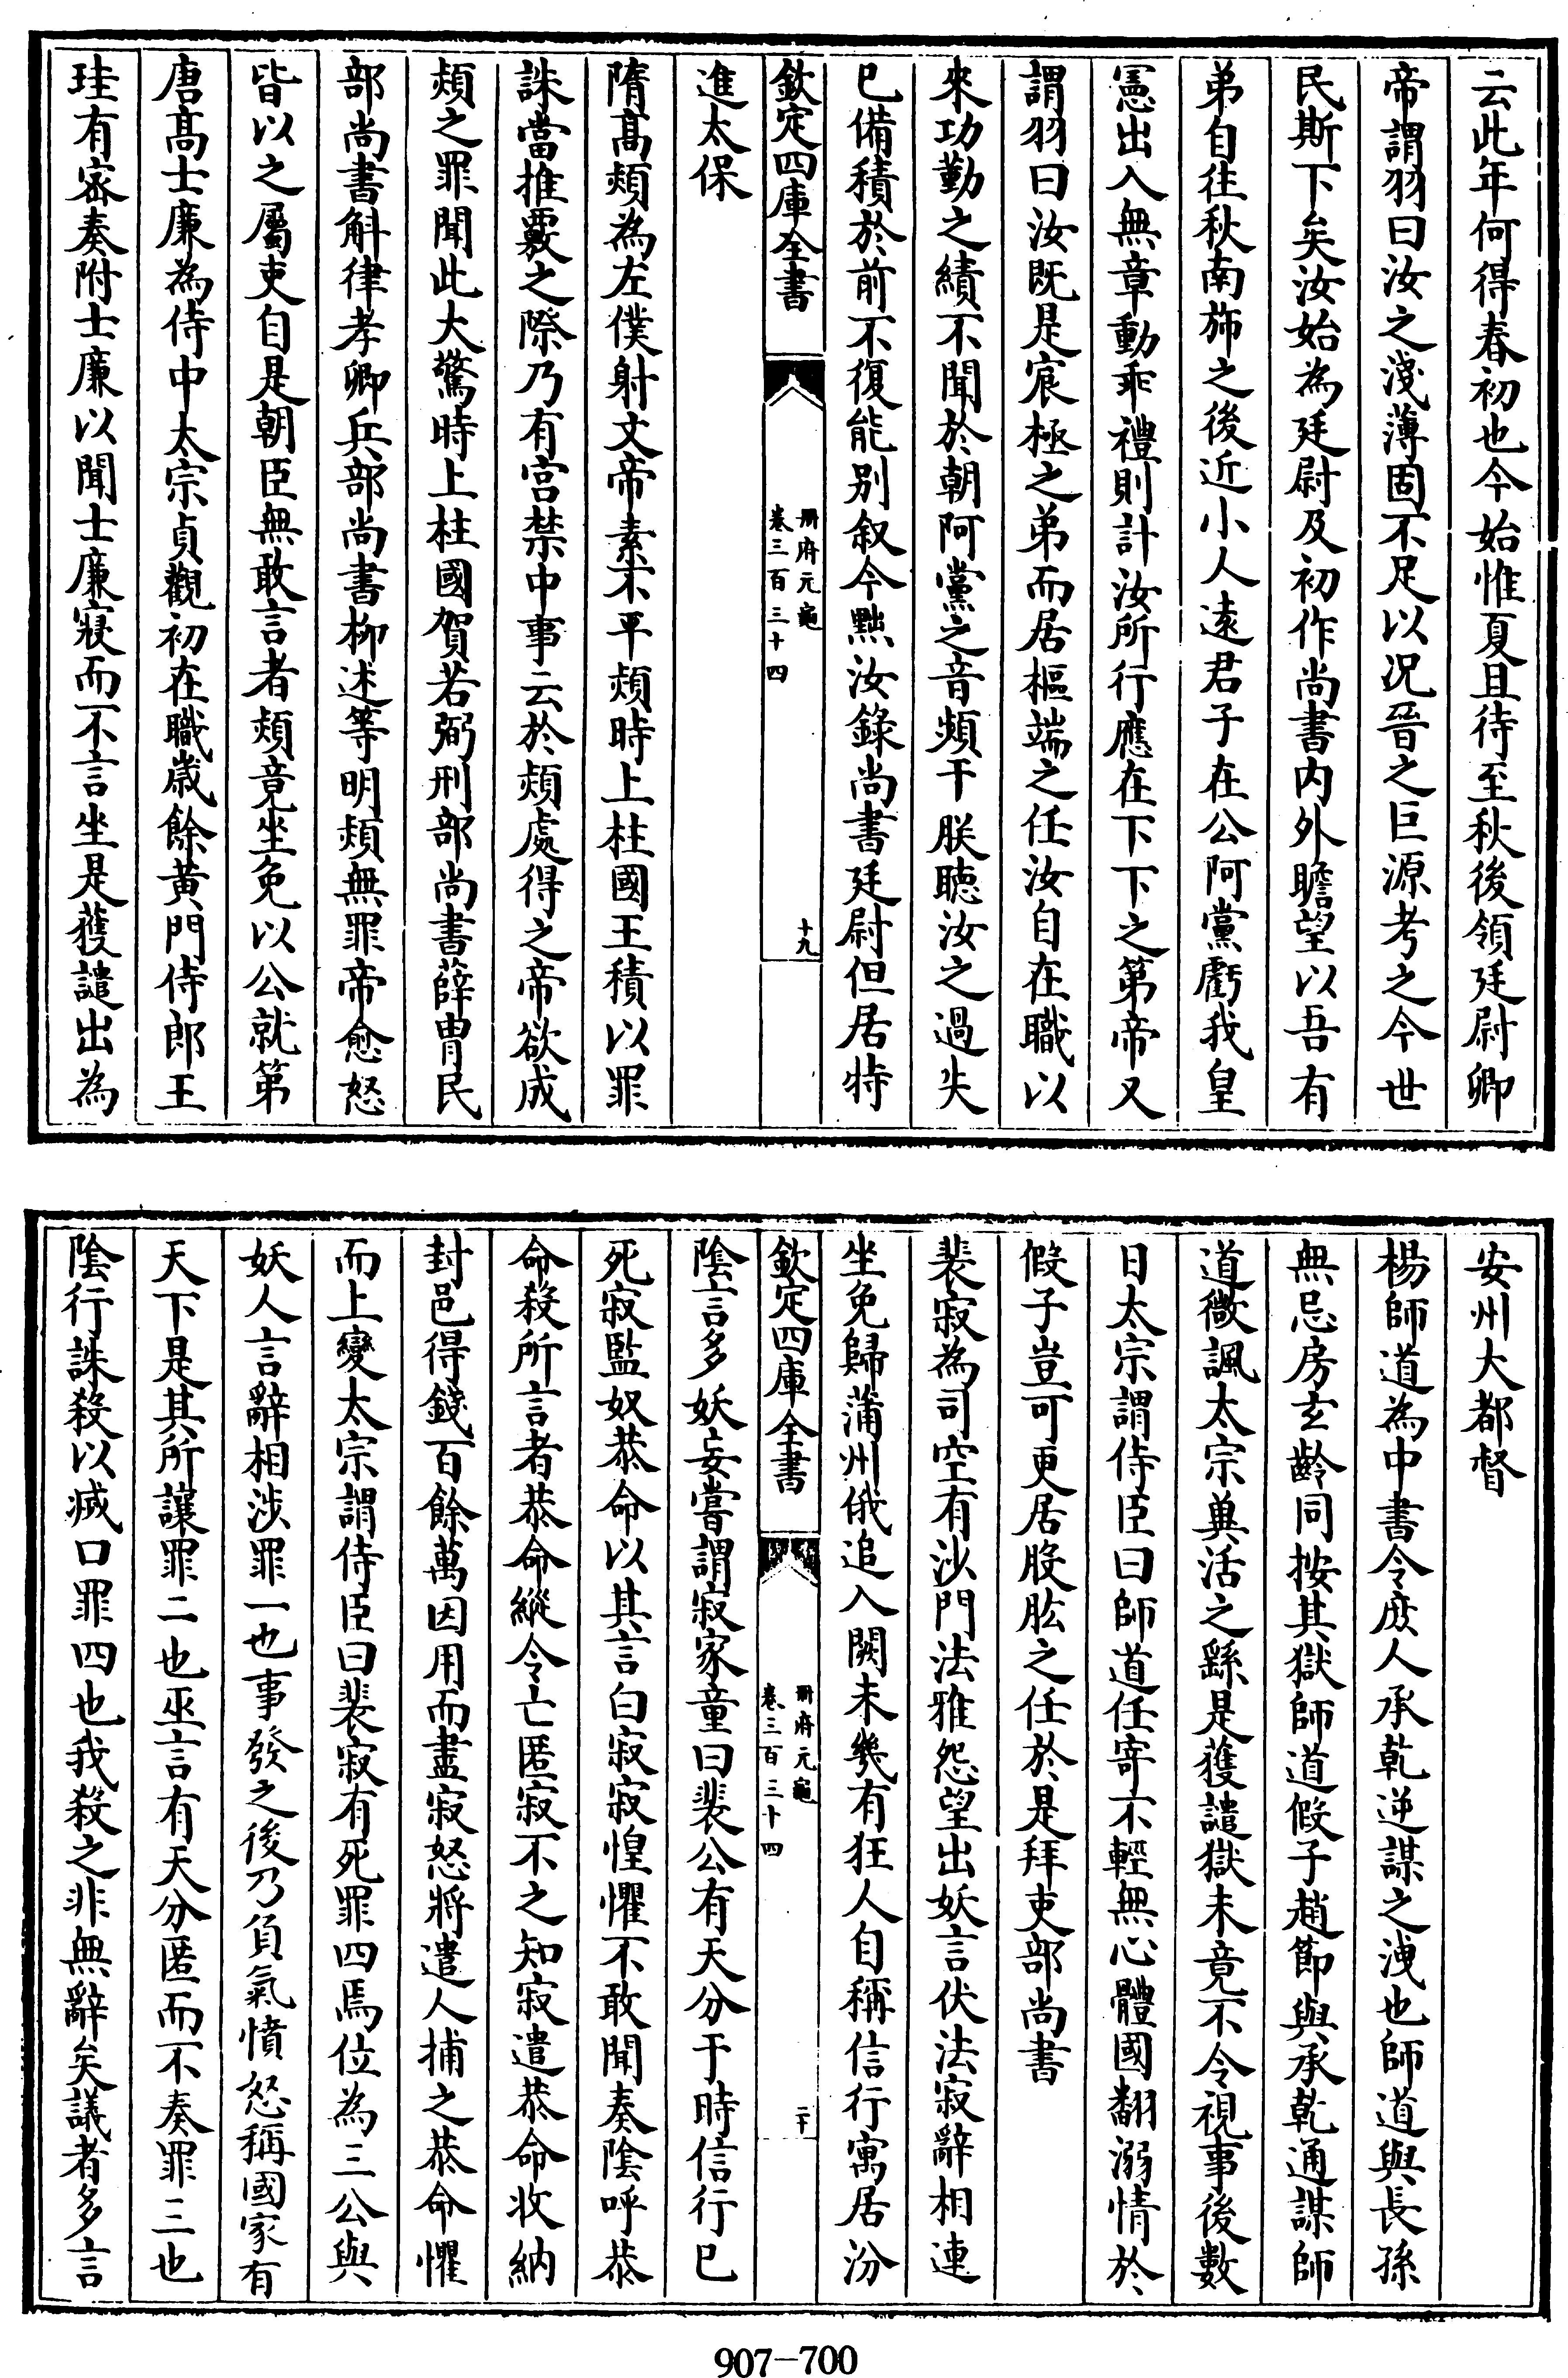 云此年何得春初也今始惟夏且待至秋後領廷尉卿
帝謂羽曰汝之淺薄固不足以况晉之巨源考之今世
民斯下矣汝始為廷尉及初作尚書内外瞻望以吾有
弟自往秋南斾之後近小人逺君子在公阿黨虧我皇
憲出入無章動乖禮則計汝所行應在下下之第帝又
謂羽曰汝既是宸極之弟而居樞端之任汝自在職以
來功勤之績不聞於朝阿黨之音頻干朕聽汝之過失
已備積於前不復能别叙今黜汝錄尚書廷尉但居特
欽定四庫全書
册府元龜
卷三百三十四
十九
進太保
隋髙熲為左僕射文帝素不平熲時上柱國王積以罪
誅當推覈之際乃有宫禁中事云於熲處得之帝欲成
熲之罪聞此大驚時上柱國賀若弼刑部尚書薛胄民
部尚書斛律孝卿兵部尚書柳述等明熲無罪帝愈怒
皆以之屬吏自是朝臣無敢言者熲竟坐免以公就第
唐髙士廉為侍中太宗貞觀初在職歳餘黄門侍郎王
珪有宻奏附士廉以聞士廉寢而不言坐是獲譴出為
安州大都督
楊師道為中書令庻人承乾逆謀之洩也師道與長孫
無忌房玄齡同按其獄師道假子趙節與承乾通謀師
道微諷太宗兾活之繇是獲譴獄未竟不令視事後數
日太宗謂侍臣曰師道任寄不輕無心體國翻溺情於
假子豈可更居股肱之任於是拜吏部尚書
裴寂為司空有沙門法雅怨望出妖言伏法寂辭相連
坐免歸蒲州俄追入闕未幾有狂人自稱信行寓居汾
欽定四庫全書
册府元龜
卷三百三十四
二十
隂言多妖妄嘗謂寂家童曰裴公有天分于時信行已
死寂監奴恭命以其言白寂寂惶懼不敢聞奏隂呼恭
命殺所言者恭命縱令亡匿寂不之知寂遣恭命收納
封邑得錢百餘萬因用而盡寂怒將遣人捕之恭命懼
而上變太宗謂侍臣曰裴寂有死罪四焉位為三公與
妖人言辭相涉罪一也事發之後乃負氣憤怒稱國家有
天下是其所讓罪二也巫言有天分匿而不奏罪三也
隂行誅殺以滅口罪四也我殺之非無辭矣議者多言
907-700